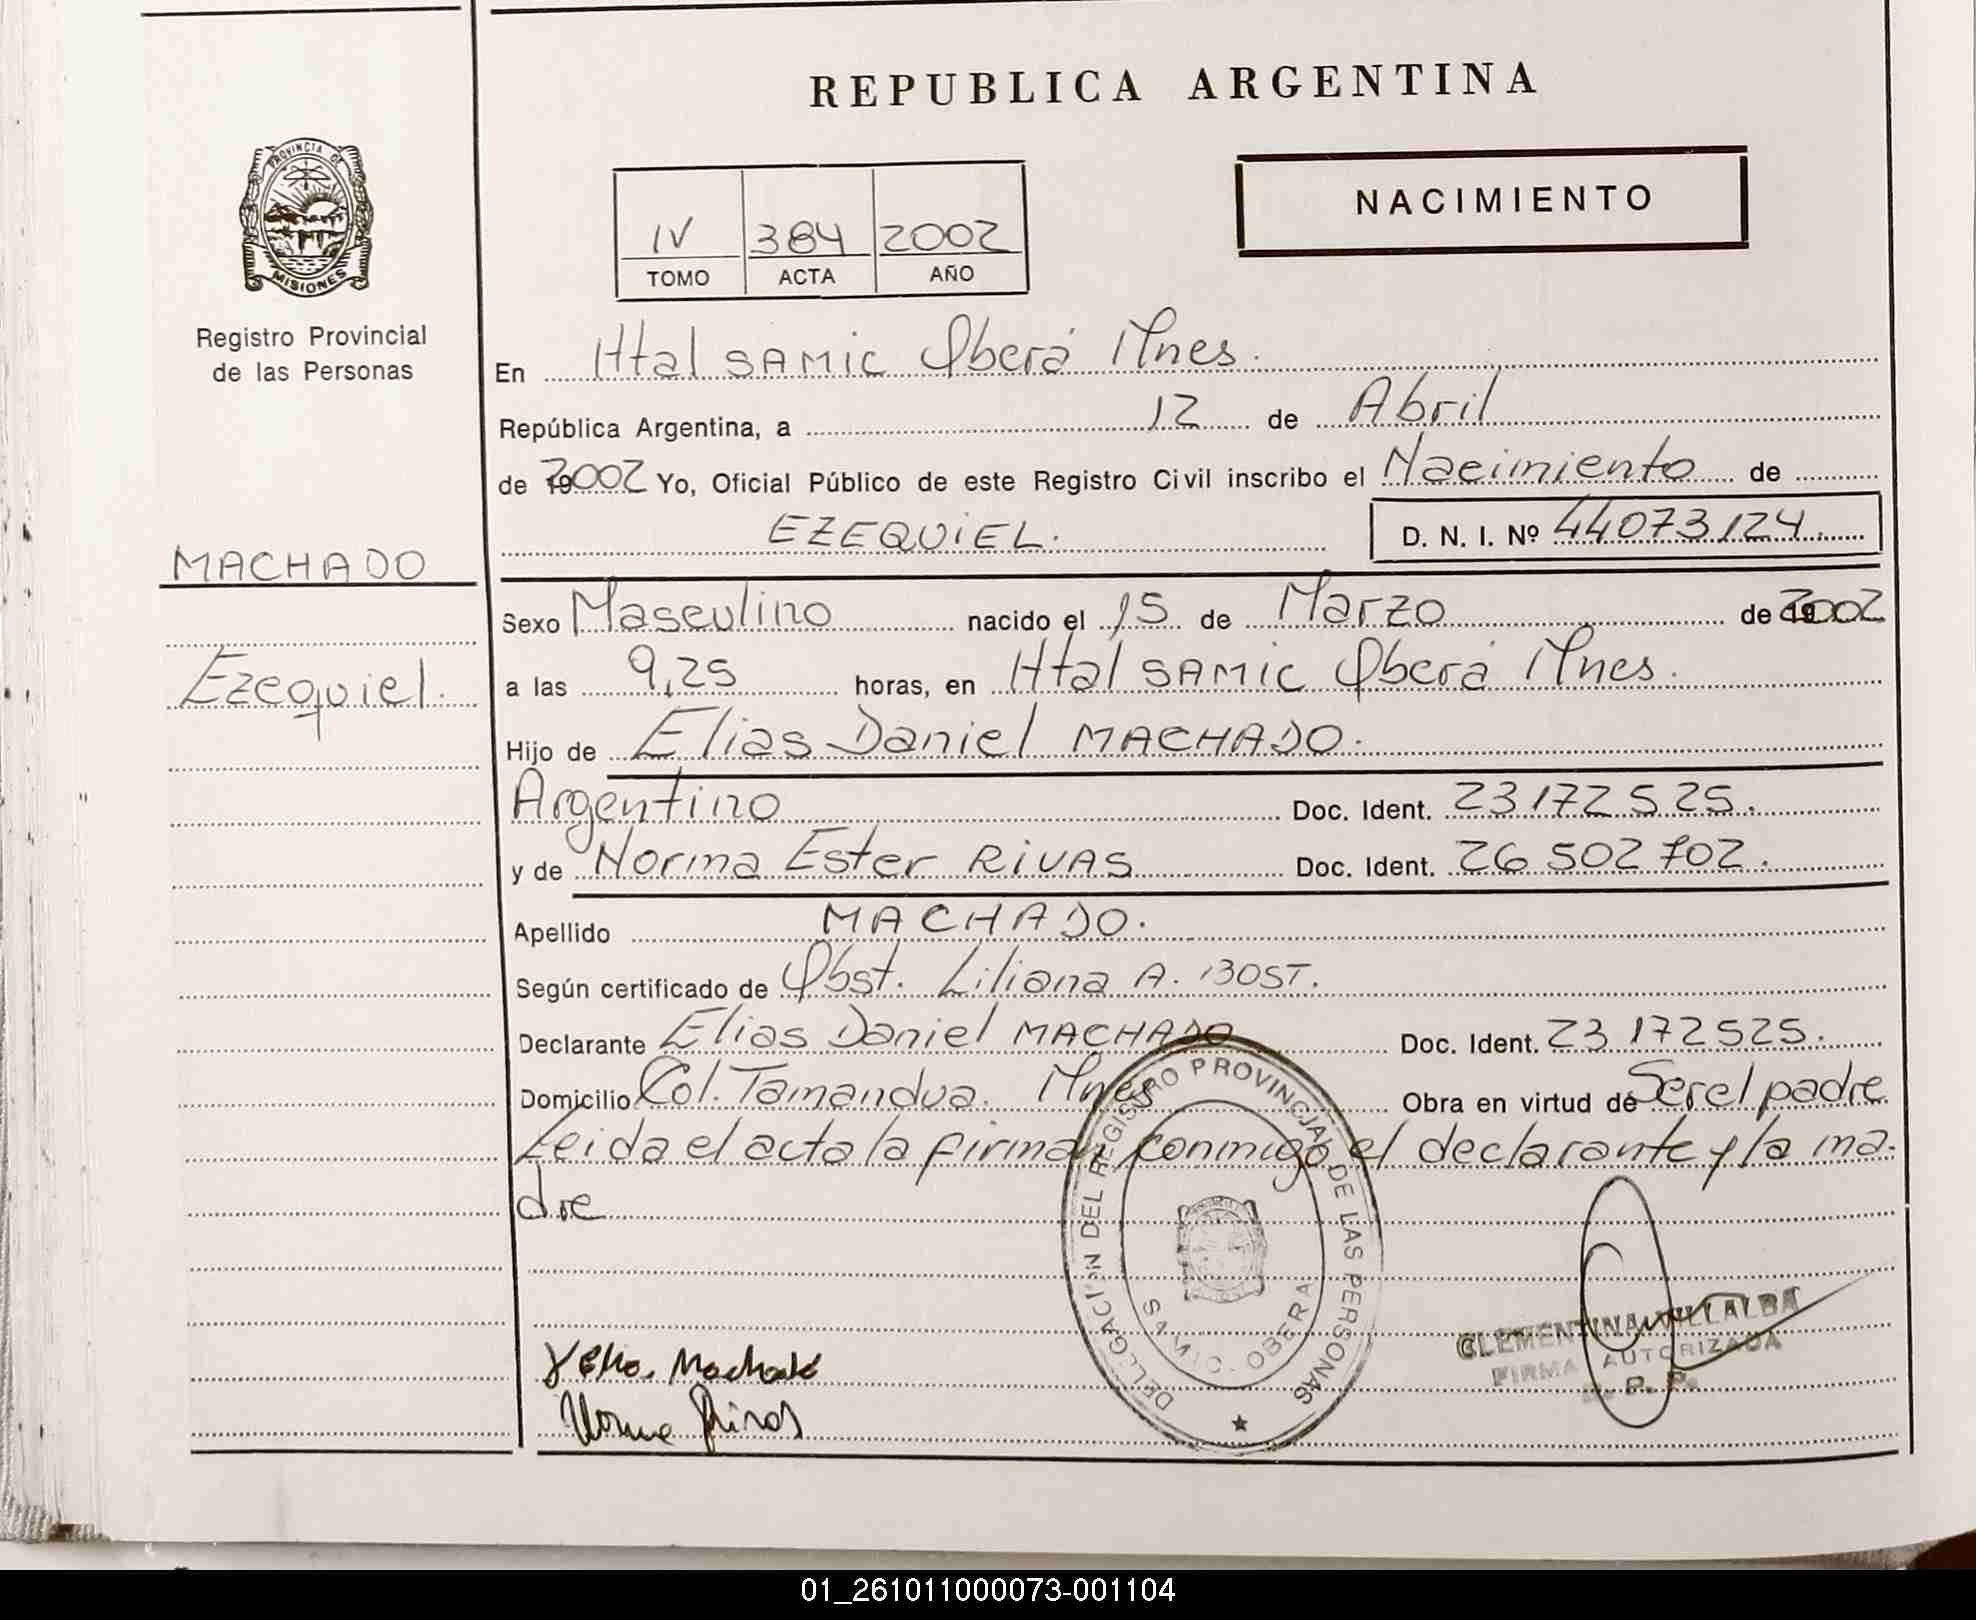 REPUBLICA ARGENTINA
PROVINCIA DE
MISIONES
Registro Provincial
de las Personas
NACIMIENTO
IV 384 2002
TOMO ACTA AÑO
En Htal SAMIC Oberá Mnes.
República Argentina, a 12 de Abril
de 2002 Yo, Oficial Público de este Registro Civil inscribo el Nacimiento de
EZEQUIEL. D. N. I. Nº 44073124.
MACHADO
Sexo Masculino nacido el 15 de Marzo de 2002
Ezequiel.
a las 9,25 horas, en Htal SAMIC Oberá Mnes.
Hijo de Elias Daniel MACHADO.
Argentino Doc. Ident. 23.172525.
y de Norma Ester RIVAS Doc. Ident. 26502702.
Apellido MACHADO.
Según certificado de Obst. Liliana A. BOST.
Declarante Elias Daniel MACHADO Doc. Ident. 23 172525.
Domicilio Col. Tamandua. Mnes Obra en virtud de Ser el padre
Leida el acta la firman conmigo el declarante y la ma-
dre
DELEGACION DEL REGISTRO PROVINCIAL DE LAS PERSONAS
SAMIC - OBERA
CLEMENTINA VILLALBA
FIRMA AUTORIZADA
R. P. P.
Elias Machado
Norma Rivas
01_261011000073-001104